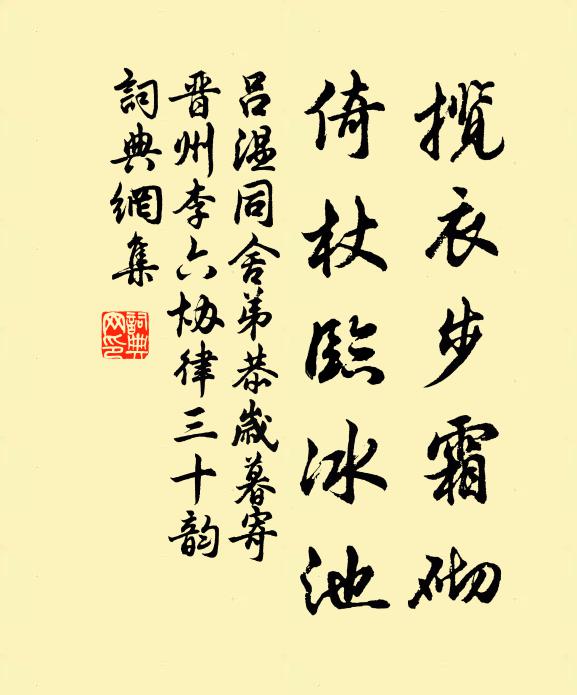 揽衣步霜砌
倚杖臨冰池
吕温同舍弟恭歲暮寄
晋州李六协律三十韵
詞典網集
詞典網印